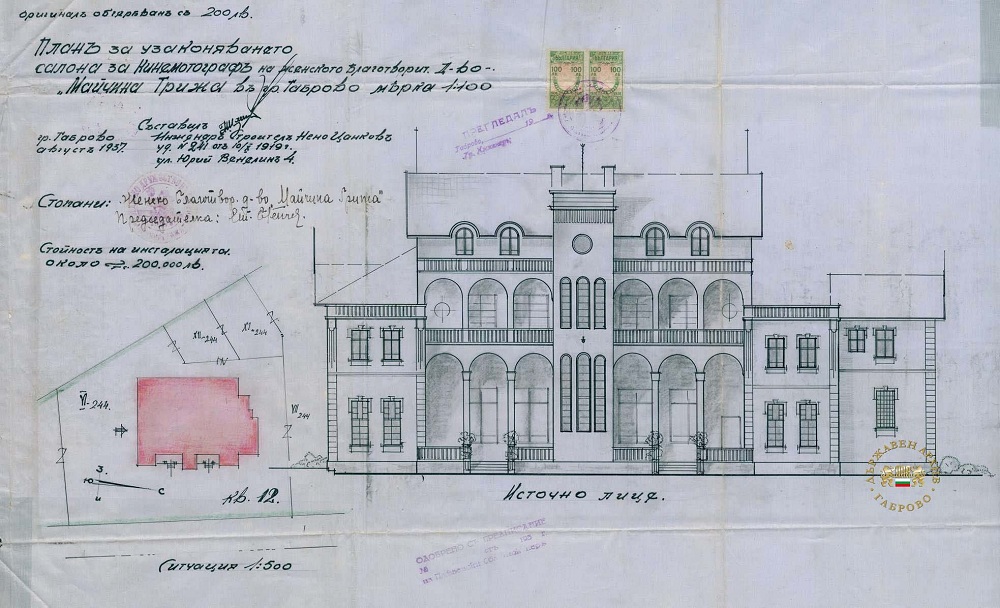 оригиналъ обгербванъ съ 200 лв.
Планъ за узаконяването
салона за Кинемотографъ на Женското Благотворит. Д-во-
"Майчина Грижа" въ гр. Габрово мѣрка 1:100
гр. Габрово
августъ 1937.
Съставилъ
Инженеръ Строителъ Нено Цанковъ
уд. № 241 отъ
1919 г.
ул. Юрий Венелинъ 4.
Стопани: Женско Благотвор. д-во "Майчина Грижа"
Председателка:
Стойность на инсталацията
около 200.000 лв.
БЪЛГАРИЯ
100 100
БЪЛГАРИЯ
100 100
ПРЕГЛЕДАЛЪ
19
XII-244
XI-244
VI-244.
VII 244
З.
Ю
С
И
кв. 12.
Ситуация 1:500
Источно лице.
ОДОБРЕНО СЪ
№
ДЪРЖАВЕН АРХИВ
ГАБРОВО